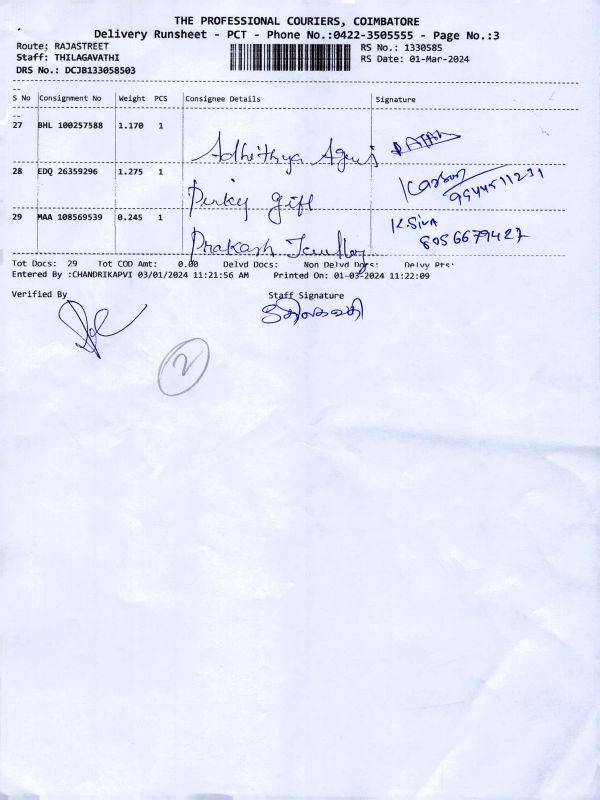 THE PROFESSIONAL COURIERS, COIMBATORE
Delivery Runsheet - PCT - Phone No.:0422-3505555 - Page No.:3
Route: RAJASTREET RS No.: 1330585
Staff: THILAGAVATHI RS Date: 01-Mar-2024
DRS No.: DCJB133058503
S No Consignment No Weight PCS Consignee Details Signature
27 BHL 100257588 1.170 1
Adhithya
28 EDQ 26359296 1.275 1
Perky gift
29 MAA 108569539 0.245 1 K.Siva
8056679427
Prakash
Tot Docs: 29 Tot COD Amt: 0.00 Delvd Docs: Non Delvd Docs: Delvy Pts:
Entered By :CHANDRIKAPVI 03/01/2024 11:21:56 AM Printed On: 01-03-2024 11:22:09
Verified By Staff Signature
2